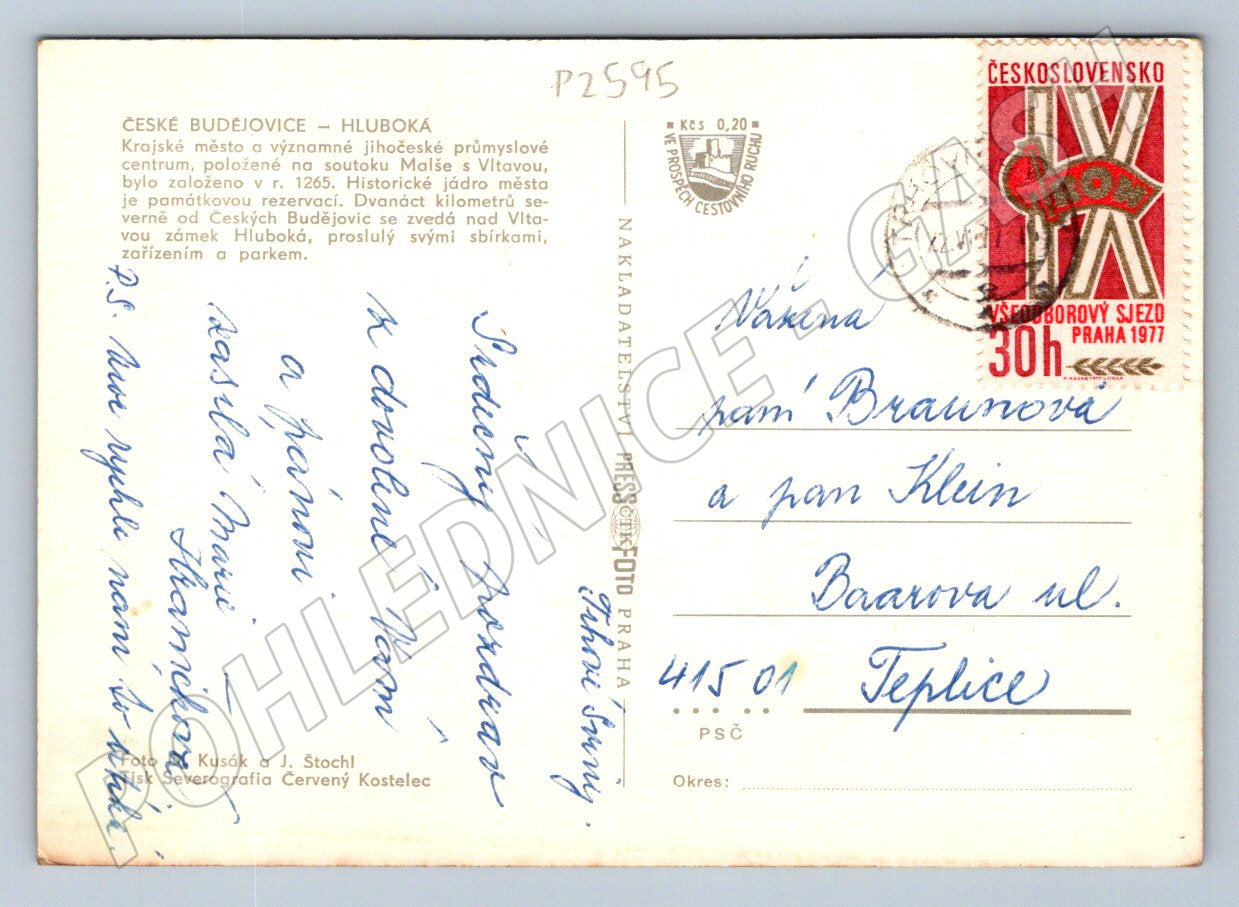 P2595
ČESKÉ BUDĚJOVICE – HLUBOKÁ
Krajské město a významné jihočeské průmyslové
centrum, položené na soutoku Malše s Vltavou,
bylo založeno v r. 1265. Historické jádro města
je památkovou rezervací. Dvanáct kilometrů se-
verně od Českých Budějovic se zvedá nad Vlta-
vou zámek Hluboká, proslulý svými sbírkami,
zařízením a parkem.
Trhové Sviny.
Srdečný pozdrav
z dovolené Vám
a pánovi
zasílá Marie
P.S. rychle nám to utíká.
Foto Kusák a J. Štochl
Tisk Severografia Červený Kostelec
NAKLADATELSTVÍ PRESSFOTO PRAHA
ČTK
Kčs 0,20
VE PROSPĚCH CESTOVNÍHO RUCHU
ČESKOSLOVENSKO
IX
VŠEODBOROVÝ SJEZD
PRAHA 1977
30h
Vážená
paní Braunová
a pan Klein
Baarova ul.
415 01 Teplice
PSČ
Okres:
POHLEDNICE - GAS